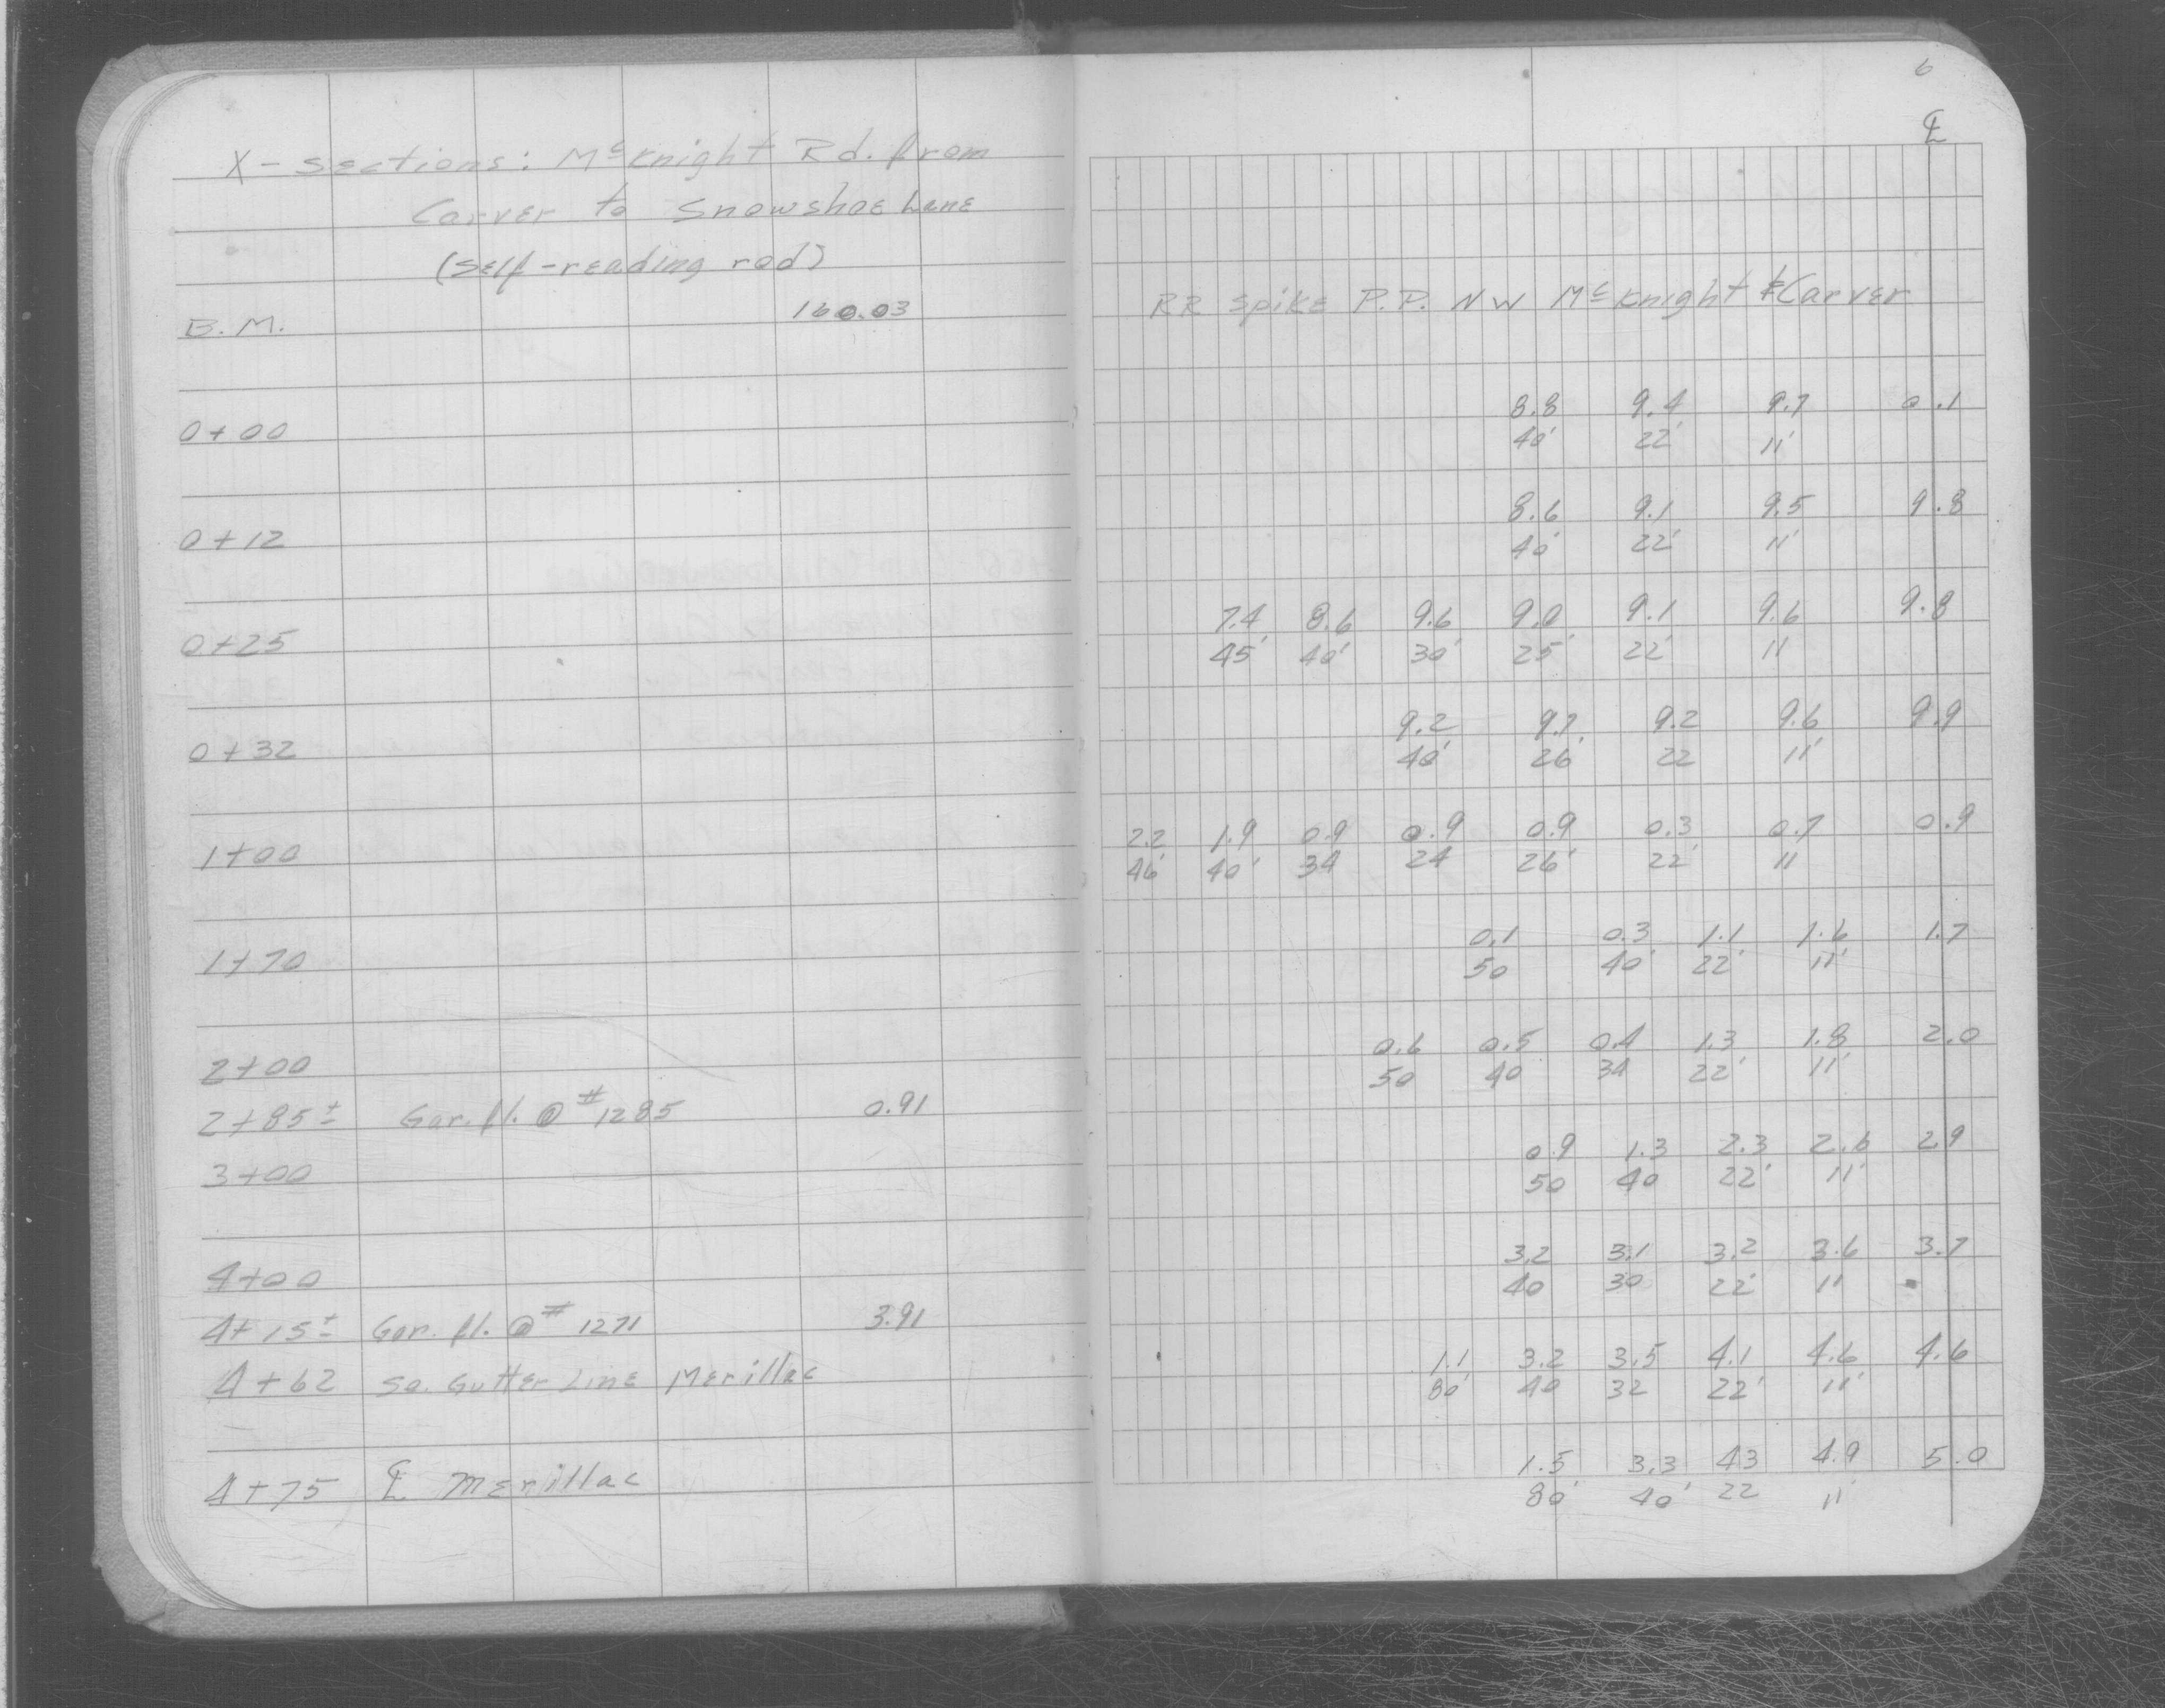 X-Sections: McKnight Rd. from
Carver to Snowshoe Lane
(self-reading rod)
B.M. 160.03
0+00
0+12
0+25
0+32
1+00
1+70
2+00
2+85± Gar. fl. @ #1285 0.91
3+00
4+00
4+15± Gar. fl. @ #1271 3.91
4+62 So. Gutter Line Merillac
4+75 ℄ Merillac
6
℄
RR Spike P.P. NW McKnight & Carver
8.8 9.4 9.7 0.1
40' 22' 11'
8.6 9.1 9.5 9.8
40' 22' 11'
7.4 8.6 9.6 9.0 9.1 9.6 9.8
45' 40' 30' 25' 22' 11
9.2 9.7 9.2 9.6 9.9
40' 26' 22 11'
2.2 1.9 0.9 0.9 0.9 0.3 0.7 0.9
46' 40' 34 24 26' 22' 11
0.1 0.3 1.1 1.6 1.7
50 40' 22' 11'
0.6 0.5 0.4 1.3 1.8 2.0
50 40 34 22' 11'
0.9 1.3 2.3 2.6 2.9
50 40 22' 11'
3.2 3.1 3.2 3.6 3.7
40 30 22' 11
1.1 3.2 3.5 4.1 4.6 4.6
80' 40 32 22' 11'
1.5 3.3 4.3 4.9 5.0
80' 40' 22 11